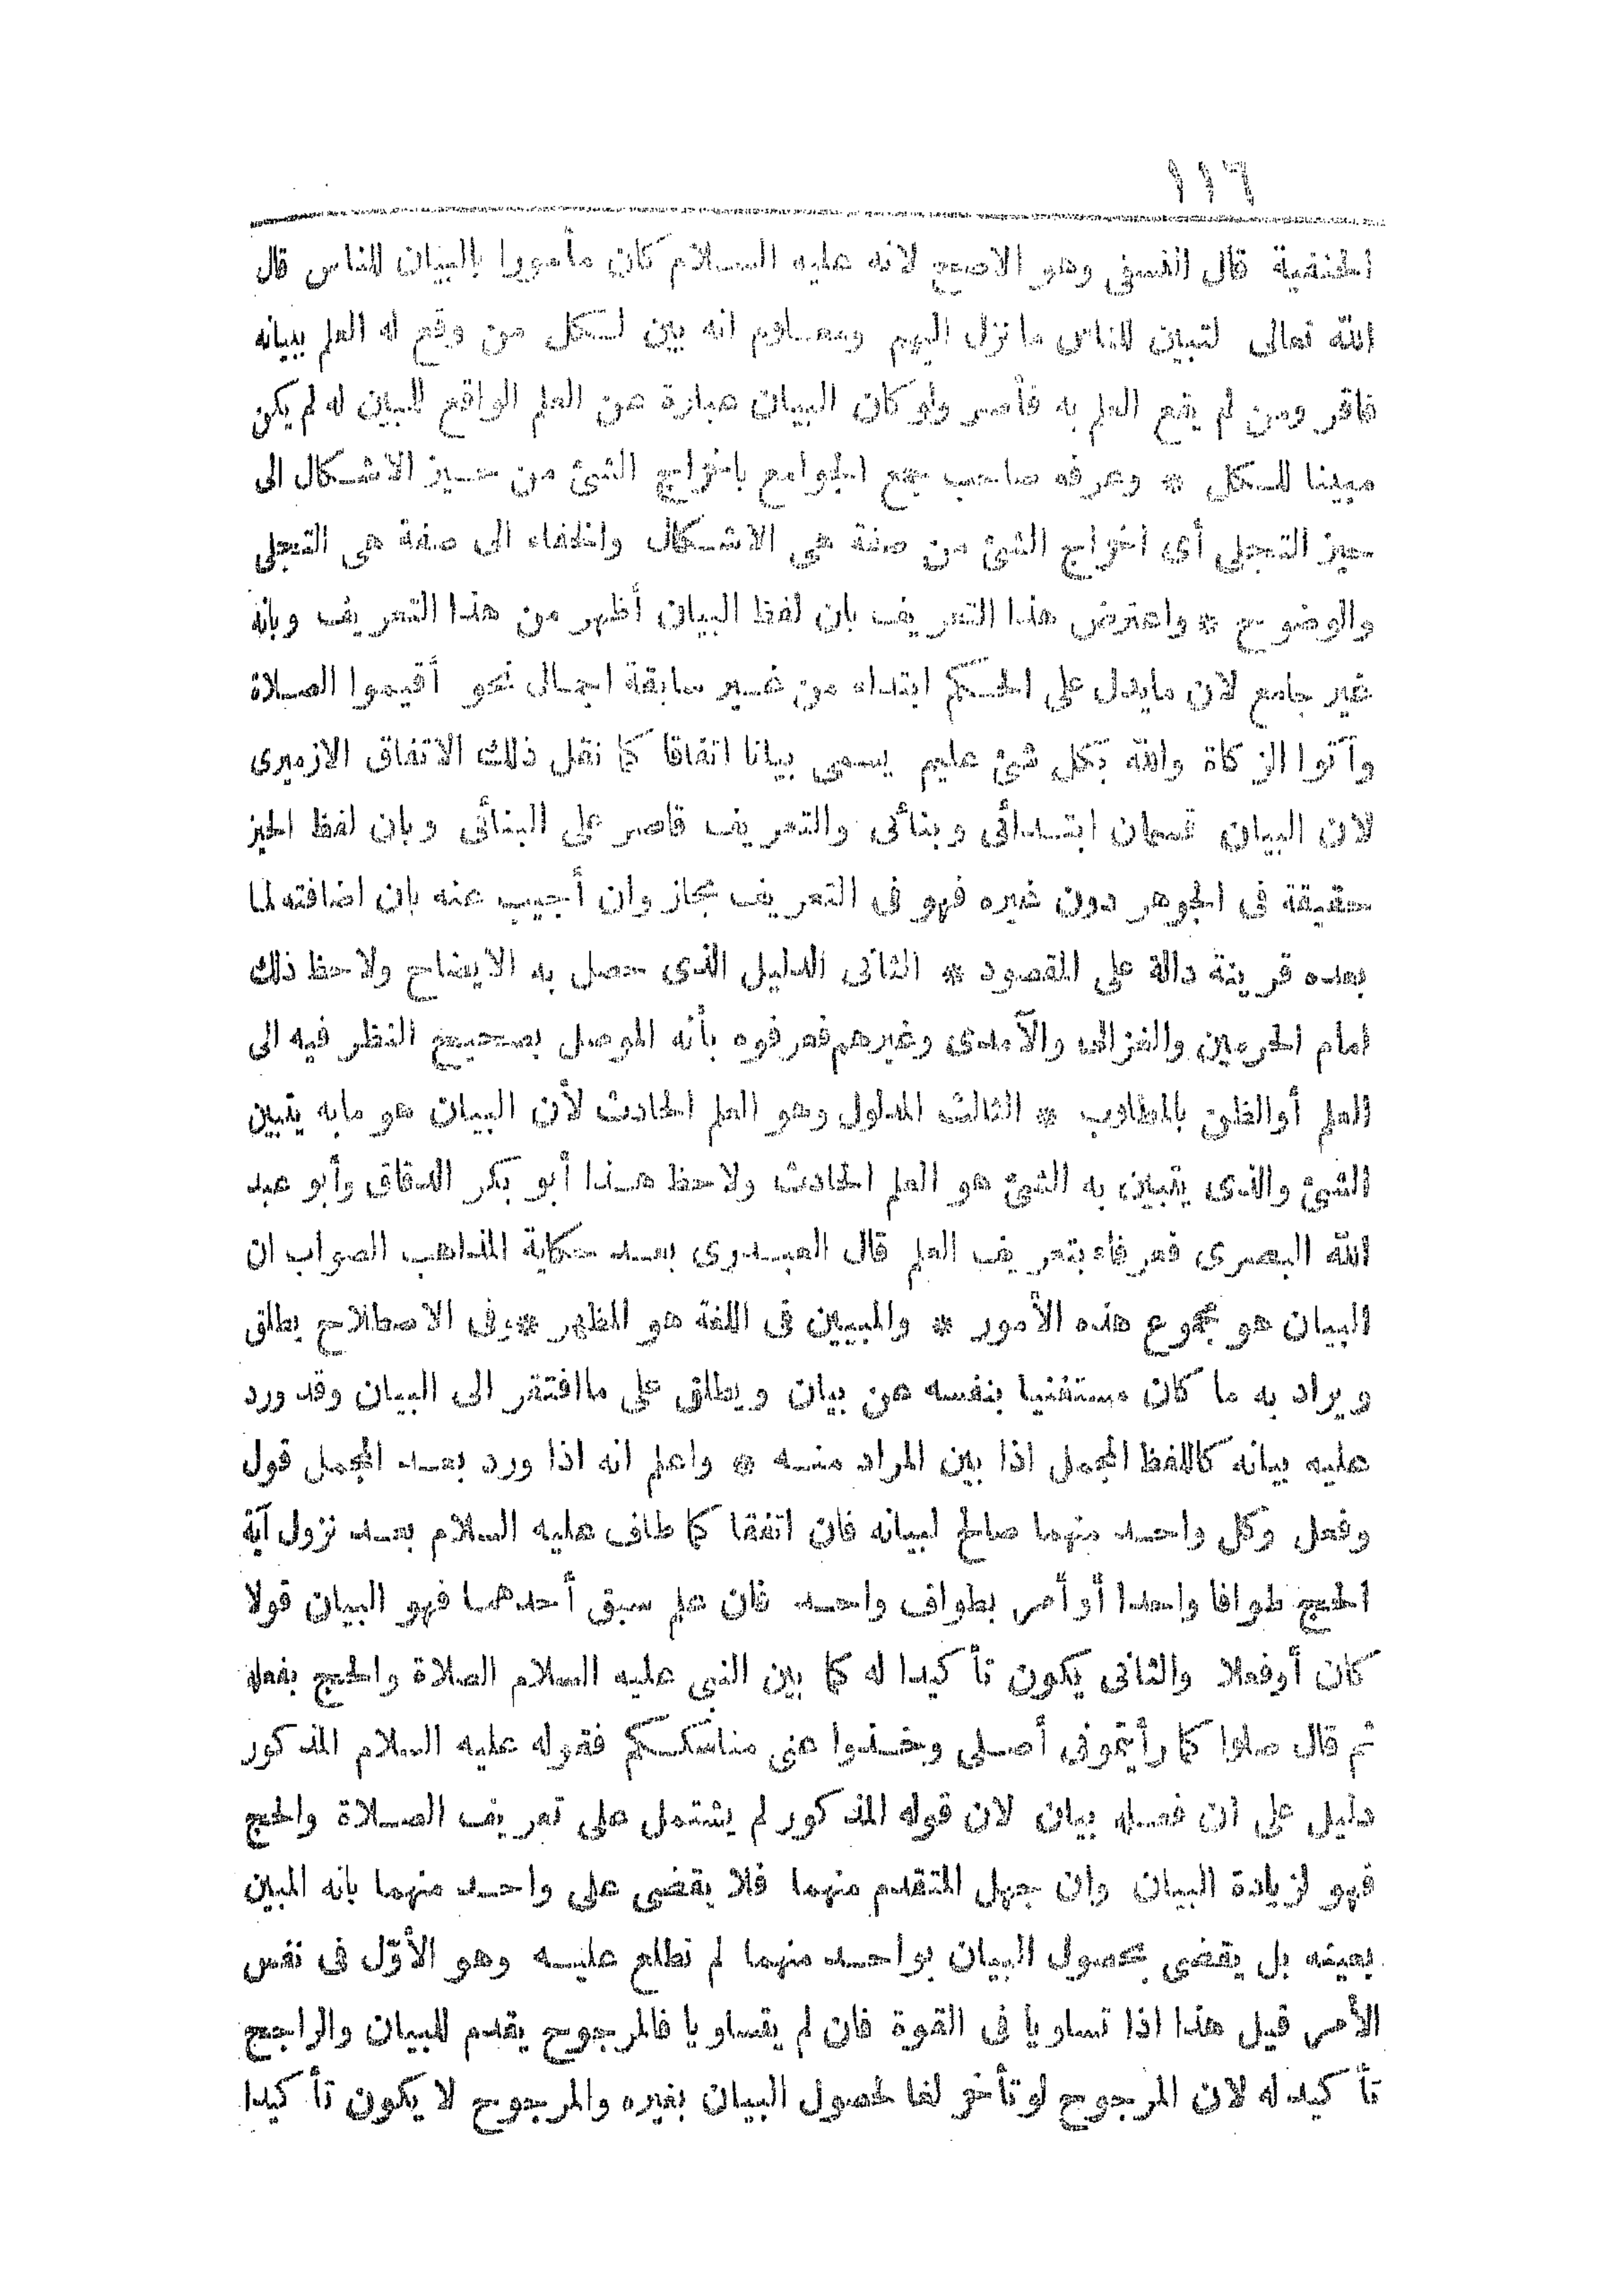 ١١٦
الحنفية قال النسفى وهو الاصح لانه عليه السلام كان مأمورا بالبيان للناس قال
الله تعالى لتبين للناس ما نزل اليهم ومعلوم انه بين لكل من وقع له العلم ببيانه
فاقر ومن لم يقع العلم به فأصر ولو كان البيان عبارة عن العلم الواقع للمبين له لم يكن
مبينا للكل * وعرفه صاحب جمع الجوامع باخراج الشئ من حيز الاشكال الى
حيز التجلى أى اخراج الشئ من صفة هى الاشكال والخفاء الى صفة هى التجلى
والوضوح * واعترض هذا التعريف بان لفظ البيان أظهر من هذا التعريف وبانه
غير جامع لان مايدل على الحكم ابتداء من غير سابقة اجمال نحو أقيموا الصلاة
وآتوا الزكاة والله بكل شئ عليم يسمى بيانا اتفاقا كما نقل ذلك الاتفاق الازميرى
لان البيان قسمان ابتدائى وبنائى والتعريف قاصر على البنائى وبان لفظ الحيز
حقيقة فى الجوهر دون غيره فهو فى التعريف مجاز وان أجيب عنه بان اضافته لما
بعده قرينة دالة على المقصود * الثانى الدليل الذى حصل به الايضاح ولاحظ ذلك
امام الحرمين والغزالى والآمدى وغيرهم فعرفوه بأنه الموصل بصحيح النظر فيه الى
العلم أوالظن بالمطلوب * الثالث المدلول وهو العلم الحادث لأن البيان هو مابه يتبين
الشئ والذى يتبين به الشئ هو العلم الحادث ولاحظ هذا أبو بكر الدقاق وأبو عبد
الله البصرى فعرفاه بتعريف العلم قال العبدرى بعد حكاية المذاهب الصواب ان
البيان هو مجموع هذه الأمور * والمبيين فى اللغة هو المظهر * وفى الاصطلاح يطلق
ويراد به ما كان مستغنيا بنفسه عن بيان ويطلق على ماافتقر الى البيان وقد ورد
عليه بيانه كاللفظ المجمل اذا بين المراد منه * واعلم انه اذا ورد بعد المجمل قول
وفعل وكل واحد منهما صالح لبيانه فان اتفقا كما طاف عليه السلام بعد نزول آية
الحج طوافا واحدا أو أمر بطواف واحد فان علم سبق أحدهما فهو البيان قولا
كان أوفعلا والثانى يكون تأكيدا له كما بين النبى عليه السلام الصلاة والحج بفعله
ثم قال صلوا كما رأيتمونى أصلى وخذوا عنى مناسككم فقوله عليه السلام المذكور
دليل على ان فعله بيان لان قوله المذكور لم يشتمل على تعريف الصلاة والحج
فهو لزيادة البيان وان جهل المتقدم منهما فلا يقضى على واحد منهما بانه المبين
بعينه بل يقضى بحصول البيان بواحد منهما لم نطلع عليه وهو الأوّل فى نفس
الأمر قيل هذا اذا تساويا فى القوة فان لم يتساويا فالمرجوح يقدم للبيان والراجح
تأكيد له لان المرجوح لو تأخر لغا لحصول البيان بغيره والمرجوح لا يكون تأكيدا